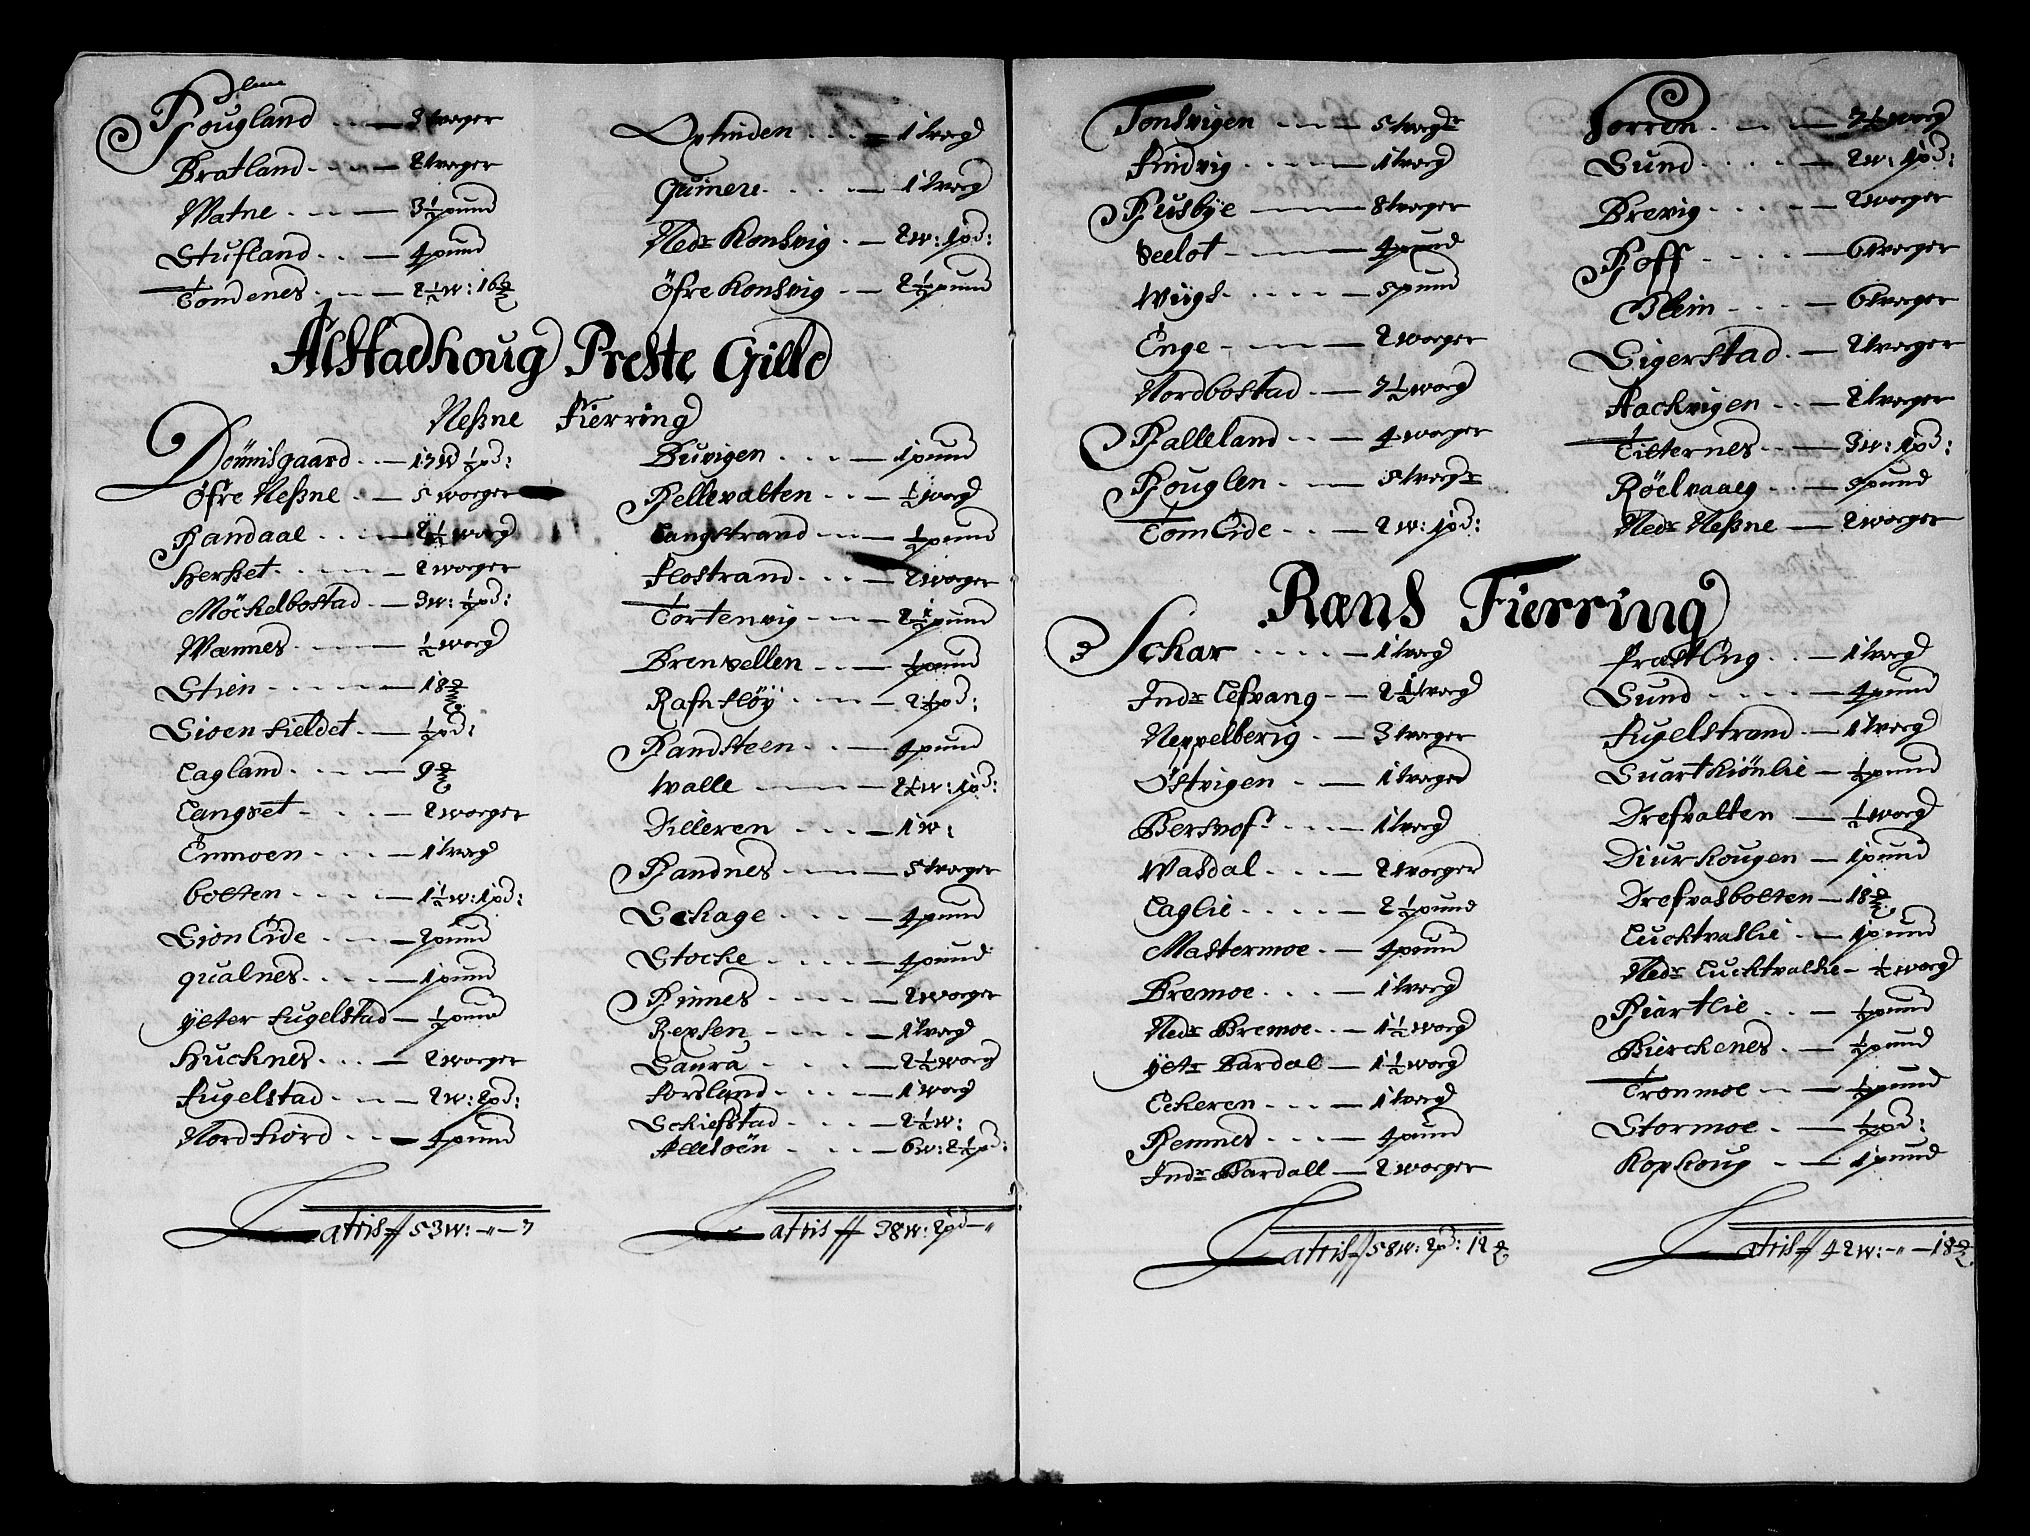 Hougland - - - 3 woger
Bratland - - - 2 woger
Watne - - - 3½ pund
Stufland - - - 4 pund
Tomdenes - - - 2½ w: 16
Ophuden - - - 1 woeg
Quinere - - - 1 woeg
Nedr Konsvig - - 2 w: 1 pd:
Öfre Konsvig - - 2½ pund
Alstadhoug Preste Gilld
Neßne Fierring
Dönnisgaard - - 17 W ½ pd:
Öfre Neßne - - 5 woeger
Randaal - - - 2½ woeg
Herßet - - - 2 woeger
Möckelbostad - - 3 w: ½ pd:
Wannes - - - ½ woeg
Stien - - - 18
Sioenfieldet - - ½ pd:
Lagland - - - 9
Langset - - - 2 woeger
Enmoen - - - 1 woeg
bolten - - - 1½ w: 1 pd:
Sion Eide - - - 2 pund
qualnes - - - 1 pund
yter fugelstad - ½ pund
Hucknes - - - 2 woeger
Fugelstad - - - 2 w: 2 pd:
Nordfiord - - - 4 pund
Latris ff 53 w: -"- 7
Buvigen - - - 1 pund
Hellevalten - - ½ woeg
Langstrand - - ½ pund
Flostrand - - - 2 woeger
Tortenvig - - 2½ pund
Brensellen - - ½ pund
Rafnfløÿ - - - 2½ pd:
Handsteen - - - 4 pund
Walle - - - 2½ w: 1 pd:
Dilleren - - - 1 w:
Handnes - - - 5 woeger
Schage - - - 4 pund
Stocke - - - 4 pund
Hinnes - - - 2 woeger
Repsen - - - 1 woeg
Saura - - - 2½ woeg
Forsland - - - 1 woeg
Schiefstad - - - 2½ w:
Allsöen - - - 6 w: 2½ pd:
Latris ff 38 w: 2 pd - "
Tonsvigen - - - 5 woegr
Findvig - - - 1 woeg
Husbÿe - - - 8 woger
Seelot - - - 4 pund
Wügs - - - 5 pund
Enge - - - 2 woeger
Nordbostad - - 7½ woeg
Halleland - - - 4 woeger
Houglen - - - 5 woegr
Tom Eide - - - 2 w: 1 pd:
Forren - - - 7½ woeg
Sund - - - 2 w: 1 pd:
Brevig - - - 2 woeger
Hoff - - - 6 woeger
Glein - - - 6 woeger
Sigerstad - - 2 woeger
Aackvigen - - 2 woeger
Tilternes - - 3 w: 1 pd:
Röelvaag - - - 5 pund
Nedr Neßne - 2 woeger
Rans Fierring
Schar - - - 1 woeg
Indr Lefvang - - 2½ woeg
Neppelberig - - 3 woeger
Östvigen - - - 1 woeged
Bersvof - - - 1 woeg
Wasdal - - - 2 woeger
Laglie - - - 2½ pund
Mastermoe - - 4 pund
Bremoe - - - 1 woeg
Nedr Bremoe - - 1½ woeg
ÿetr Bardal - 1½ woeg
Eckeren - - - 1 woeg
Hemnes - - - 4 pund
Indr Bardall - 2 woeger
Latris ff 58 w: 2 pd: 12
Præst Eng - - 1 woeg
Sund - - - 4 pund
Fugelstrand - - 1 woeg
Suartkiönlie - ½ pund
Drefvalten - ½ woeg
Diurhougen - 1 pund
Drefvasbolten - 18
Lucktvaslie - - 1 pund
Nedr Lucktvaslie - ½ woeg
Hiartlie - - ½ pund
Bierckenes - - ½ pund
Tronmoe - - ½ pund
Stormoe - - ½ pd:
Kophoug - - 1 pund
Latris ff 42 w: - " - 18